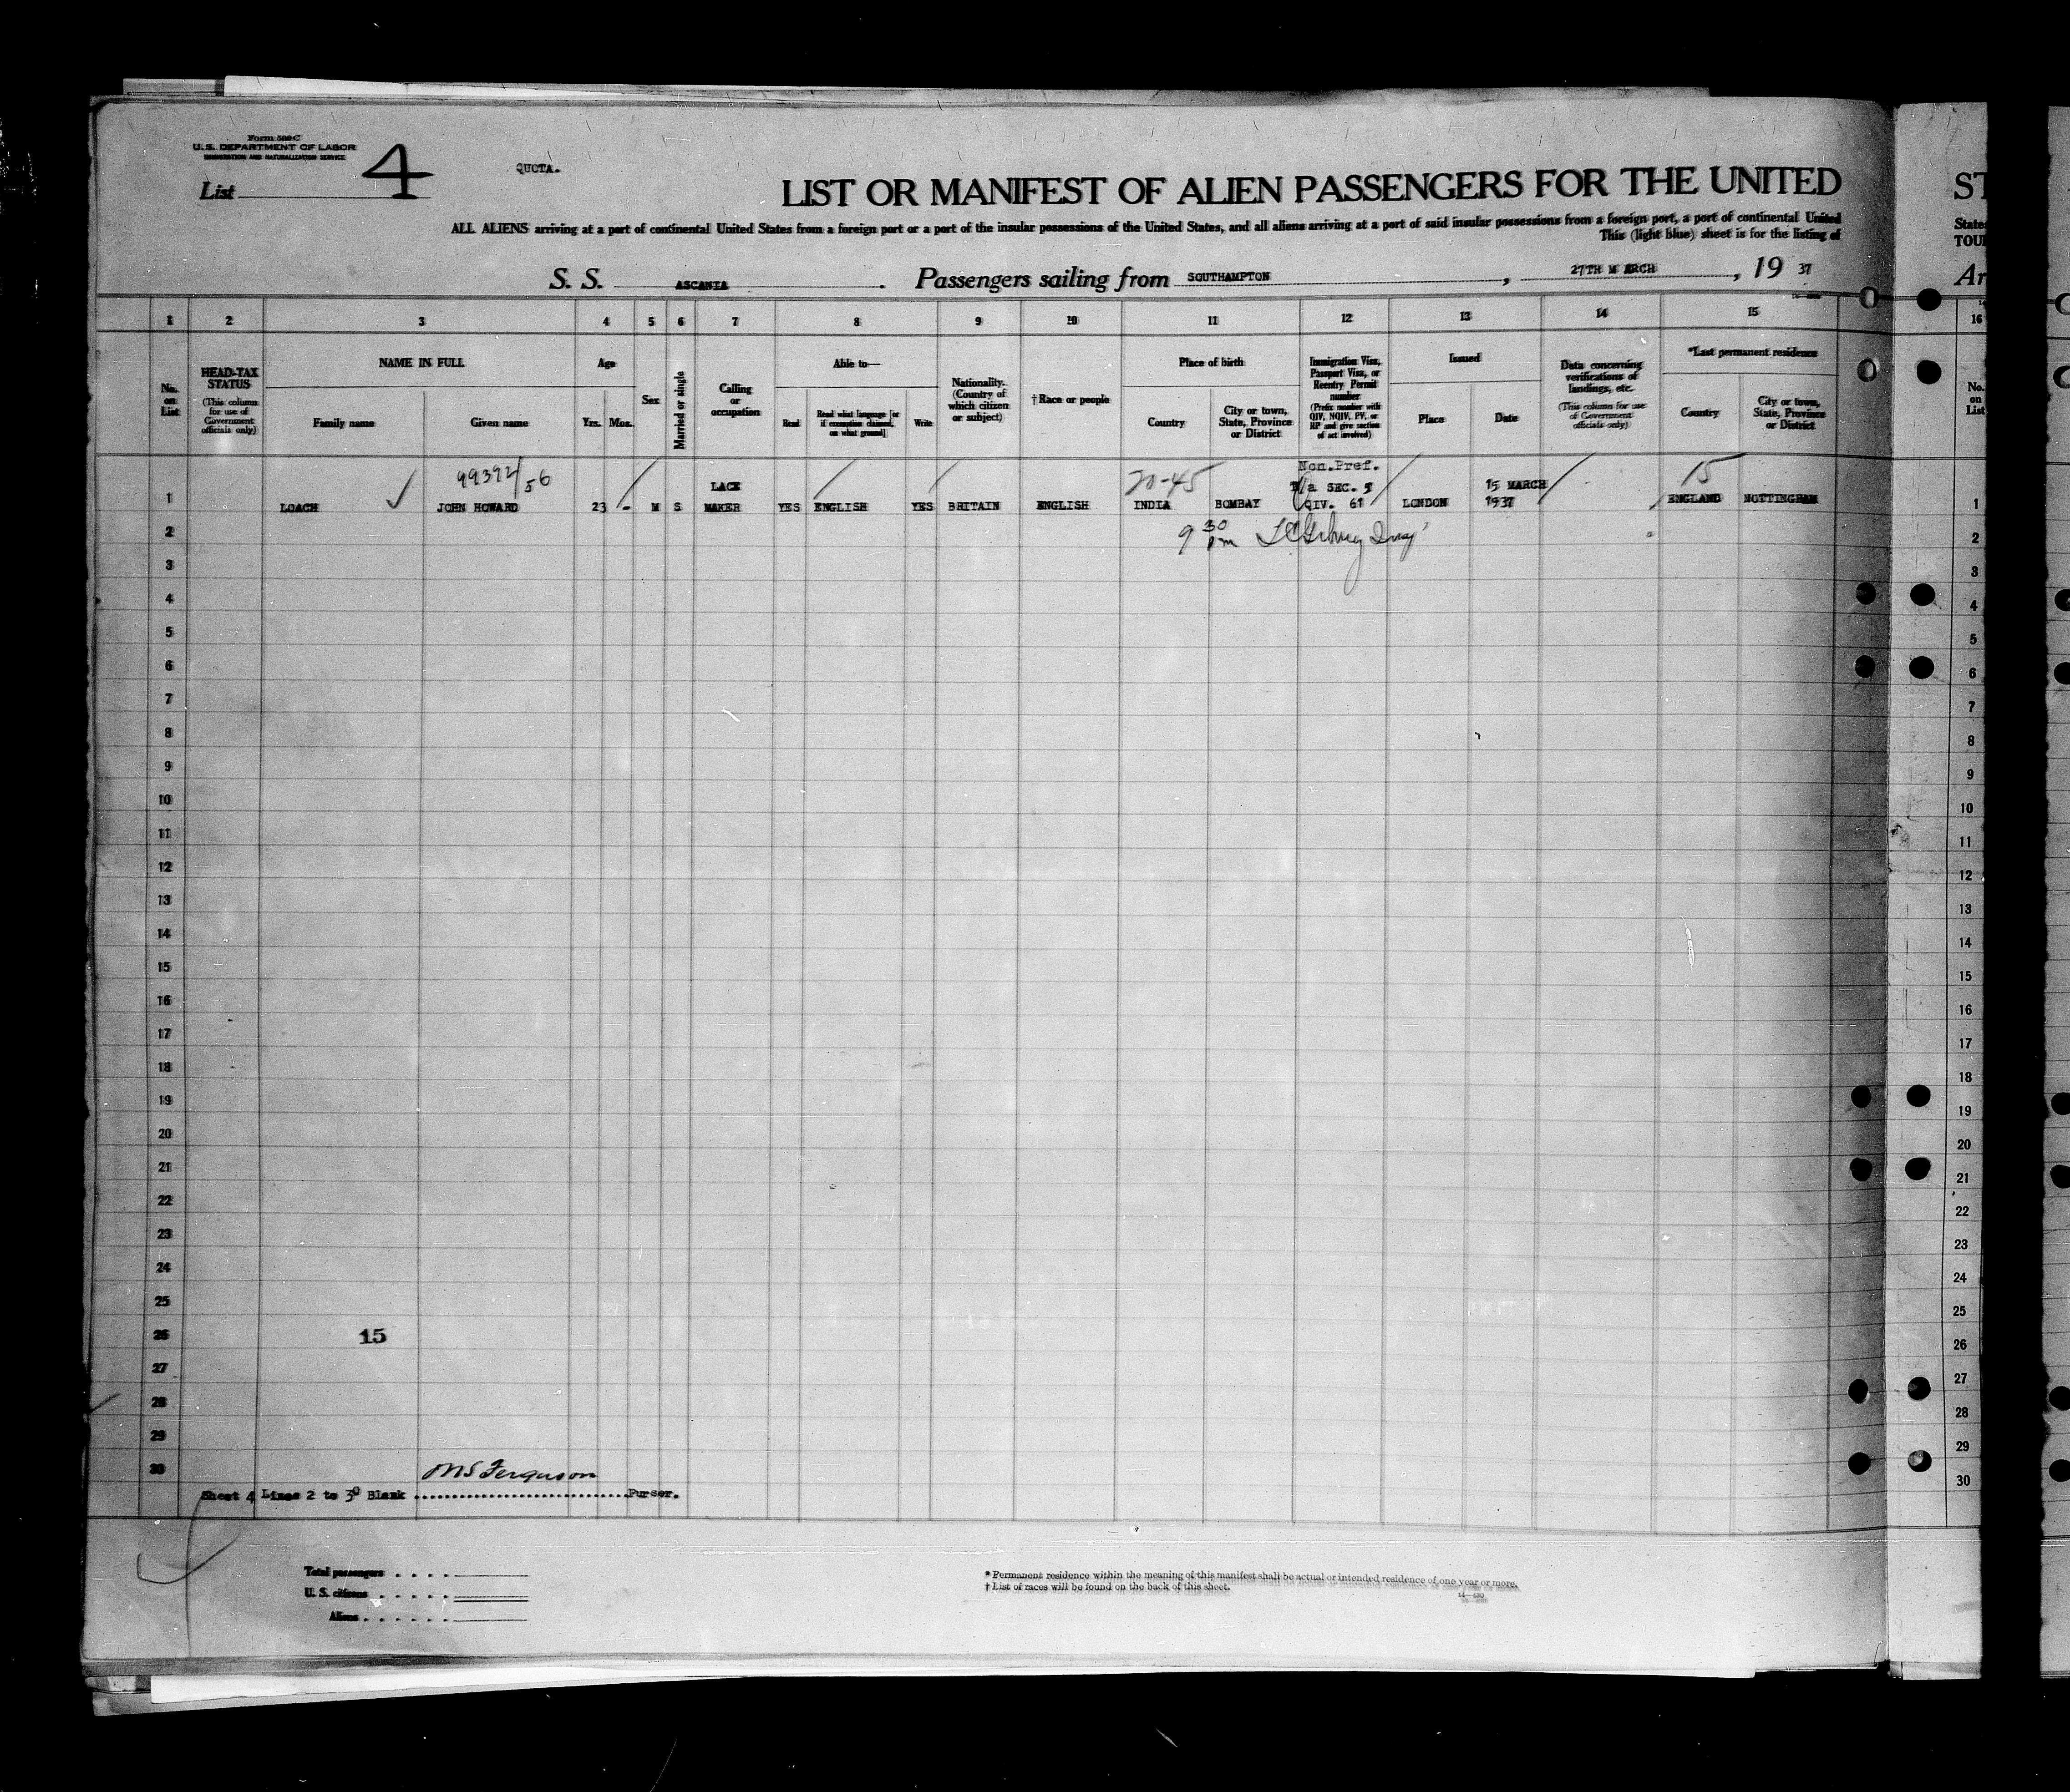 Form 500 C
U. S. DEPARTMENT OF LABOR
IMMIGRATION AND NATURALIZATION SERVICE
List 4
QUOTA.
LIST OR MANIFEST OF ALIEN PASSENGERS FOR THE UNITED
ALL ALIENS arriving at a port of continental United States from a foreign port or a port of the insular possessions of the United States, and all aliens arriving at a port of said insular possessions from a foreign port, a port of continental United
This (light blue) sheet is for the listing of
S. S. ASCANIA . Passengers sailing from SOUTHAMPTON , 27TH M ARCH , 19 37
ST
States
TOU
Ar
1 2 3 4 5 6 7 8 9 10 11 12 13 14 15 16
No. on List
HEAD-TAX STATUS
(This column for use of Government officials only)
NAME IN FULL
Family name
Given name
Age
Yrs. Mos.
Sex
Married or single
Calling or occupation
Able to—
Read
Read what language [or if exemption claimed, on what ground]
Write
Nationality. (Country of which citizen or subject)
†Race or people
Place of birth
Country
City or town, State, Province or District
Immigration Visa, Passport Visa, or Reentry Permit number
(Prefix number with QIV, NQIV, PV, or RP and give section of act involved)
Issued
Place
Date
Data concerning verifications of landings, etc.
(This column for use of Government officials only)
*Last permanent residence
Country
City or town, State, Province or District
No. on List
99392/56
20-45
Non.Pref.
15
LACE
SEC. 5
15 MARCH
1 LOACH JOHN HOWARD 23 - M S MAKER YES ENGLISH YES BRITAIN ENGLISH INDIA BOMBAY QIV. 61 LONDON 1937 ENGLAND NOTTINGHAM 1
2 9 30 pm 2
3 3
4 4
5 5
6 6
7 7
8 8
9 9
10 10
11 11
12 12
13 13
14 14
15 15
16 16
17 17
18 18
19 19
20 20
21 21
22 22
23 23
24 24
25 25
26 15 26
27 27
28 28
29 29
30 30
MS Ferguson
Sheet 4 Lines 2 to 30 Blank ..............................Purser.
Total passengers . . . .
U. S. citizens . . . . .
Aliens . . . . . .
* Permanent residence within the meaning of this manifest shall be actual or intended residence of one year or more.
† List of races will be found on the back of this sheet.